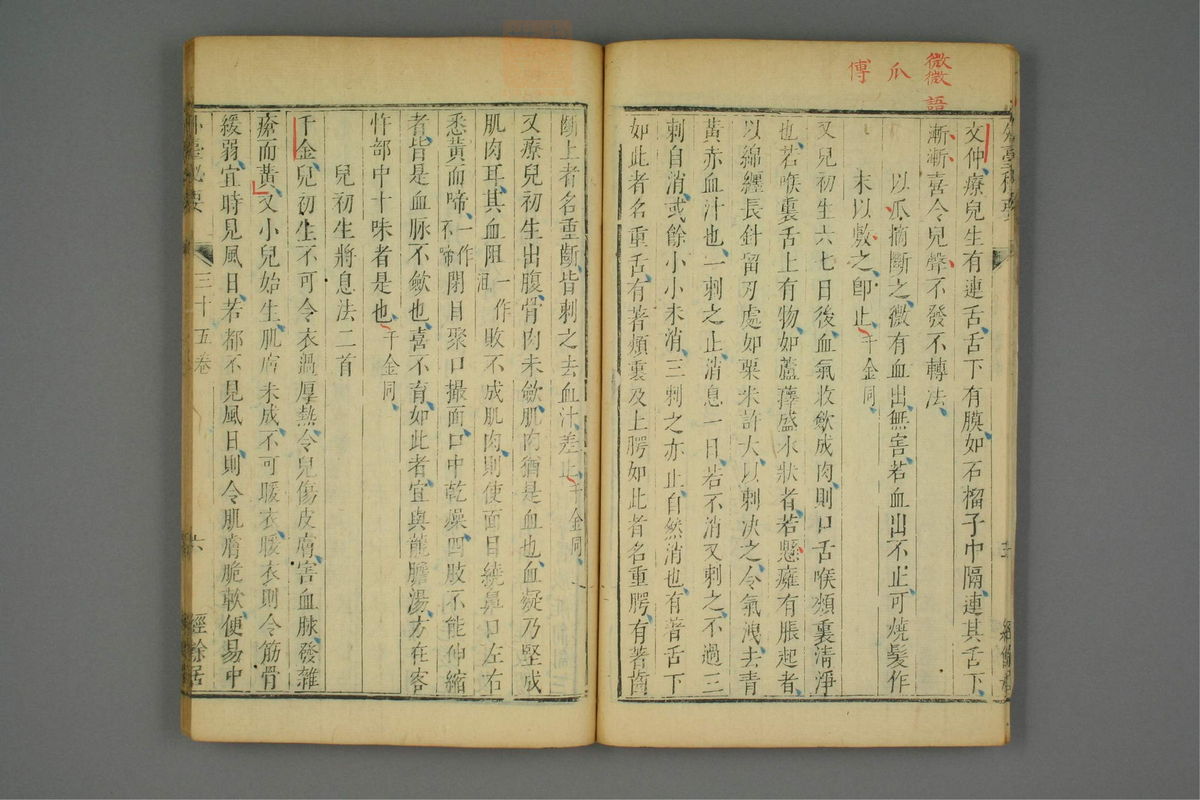 微徵語
爪
傅
文仲療兒生有連舌舌下有膜如石榴子中隔連其舌下
漸漸喜令兒聲不發不轉法
以爪摘斷之微有血出無害若血出不止可燒髮作
末以敷之卽止千金同
又兒初生六七日後血氣收歛成肉則口舌喉頰裏清淨
也若喉裏舌上有物如蘆籜盛水狀者若懸癰有脹起者
以綿纏長針留刃處如粟米許大以刺決之令氣洩去青
黃赤血汁也一刺之止消息一日若不消又刺之不過三
刺自消或餘小小未消三刺之亦止自然消也有著舌下
如此者名重舌有著頰裏及上腭如此者名重腭有著齒
齗上者名重齗皆刺之去血汁差止千金同
又療兒初生出腹骨肉未歛肌肉猶是血也血凝乃堅成
肌肉耳其血阻一作沮敗不成肌肉則使面目繞鼻口左右
悉黃而啼一作不啼閉目聚口撮面口中乾燥四肢不能伸縮
者皆是血脉不歛也喜不育如此者宜與龍膽湯方在客
忤部中十味者是也千金同
兒初生將息法二首
千金兒初生不可令衣過厚熱令兒傷皮膚害血脉發雜
瘡而黃又小兒始生肌膚未成不可暖衣暖衣則令筋骨
緩弱宜時見風日若都不見風日則令肌膚脆軟便易中
外臺祕要
三十五卷
六
經餘居